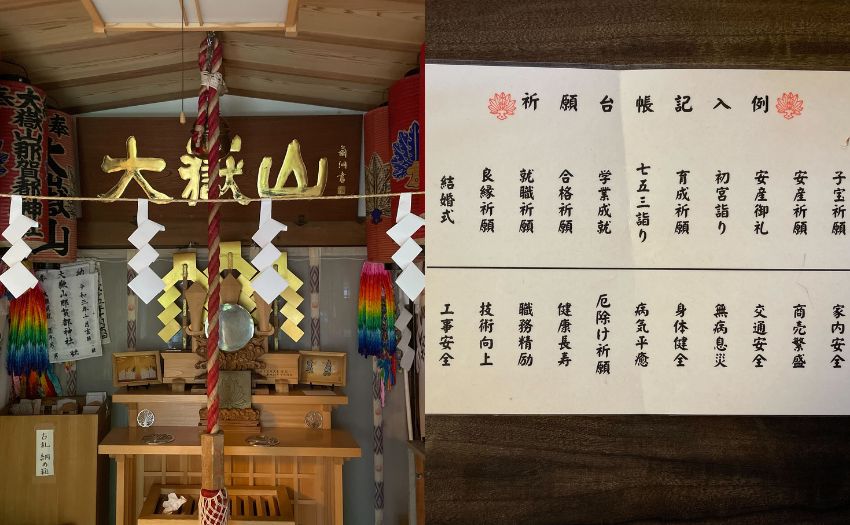 大嶽山
奉
大嶽山那賀都神社
奉
大嶽山
大嶽山那賀都神社
古札納め箱
祈願台帳記入例
子宝祈願
安産祈願
安産御礼
初宮詣り
育成祈願
七五三詣り
学業成就
合格祈願
就職祈願
良縁祈願
結婚式
家内安全
商売繁盛
交通安全
無病息災
身体健全
病気平癒
厄除け祈願
健康長寿
職務精励
技術向上
工事安全